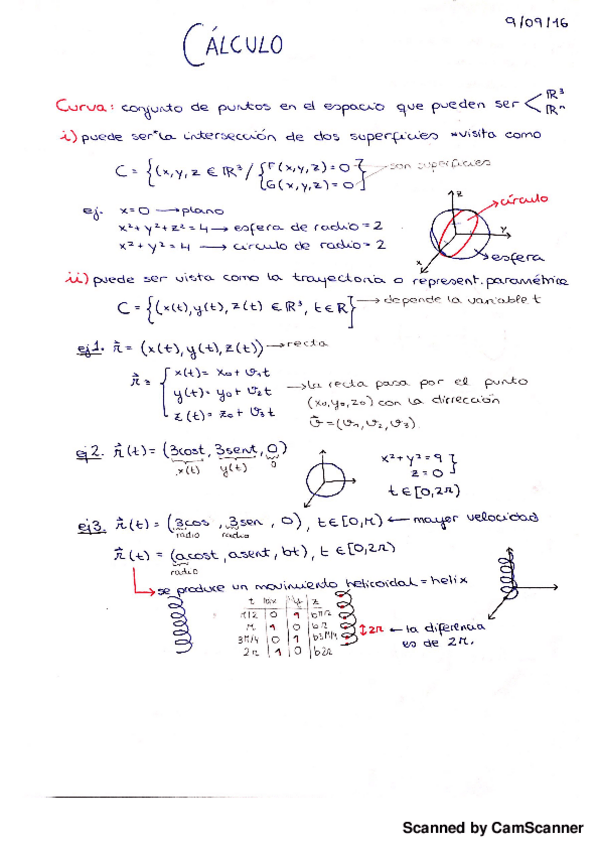 9/09/16
CÁLCULO
Curva: conjunto de puntos en el espacio que pueden ser < R³ Rⁿ
i) puede ser la intersección de dos superficies visita como
C = {(x,y,z ∈ R³ / {F(x,y,z)=0 → son superficies
G(x,y,z)=0}
ej. x=0 → plano
x²+y²+z²=4 → esfera de radio=2
x²+y²=4 → circulo de radio=2
z
círculo
y
x
esfera
ii) puede ser vista como la trayectoria o represent. paramétrica
C = {(x(t),y(t),z(t) ∈ R³, t∈R} → depende la variable t
ej1. r⃗ = (x(t),y(t),z(t)) → recta
r⃗ = { x(t)= x₀+ v₁t
y(t)= y₀+ v₂t
z(t)= z₀+ v₃t
→ la recta pasa por el punto
(x₀,y₀,z₀) con la dirrección
v⃗=(v₁,v₂,v₃).
ej2. r⃗(t) = (3cost, 3sent, 0)
x(t) y(t) 0
x²+y²=9
z=0 }
t∈[0,2π)
ej3. r⃗(t) = (3cos, 3sen, 0), t∈[0,π) ← mayor velocidad
radio radio
r⃗(t) = (acost, asent, bt), t∈[0,2π)
radio
→ se produce un movimiento helicoidal = helix
π/2 0 1 bπ/2
π 1 0 bπ
3π/4 0 1
2π 1 0 b2π
↕2π ← la diferencia
es de 2π.
Scanned by CamScanner